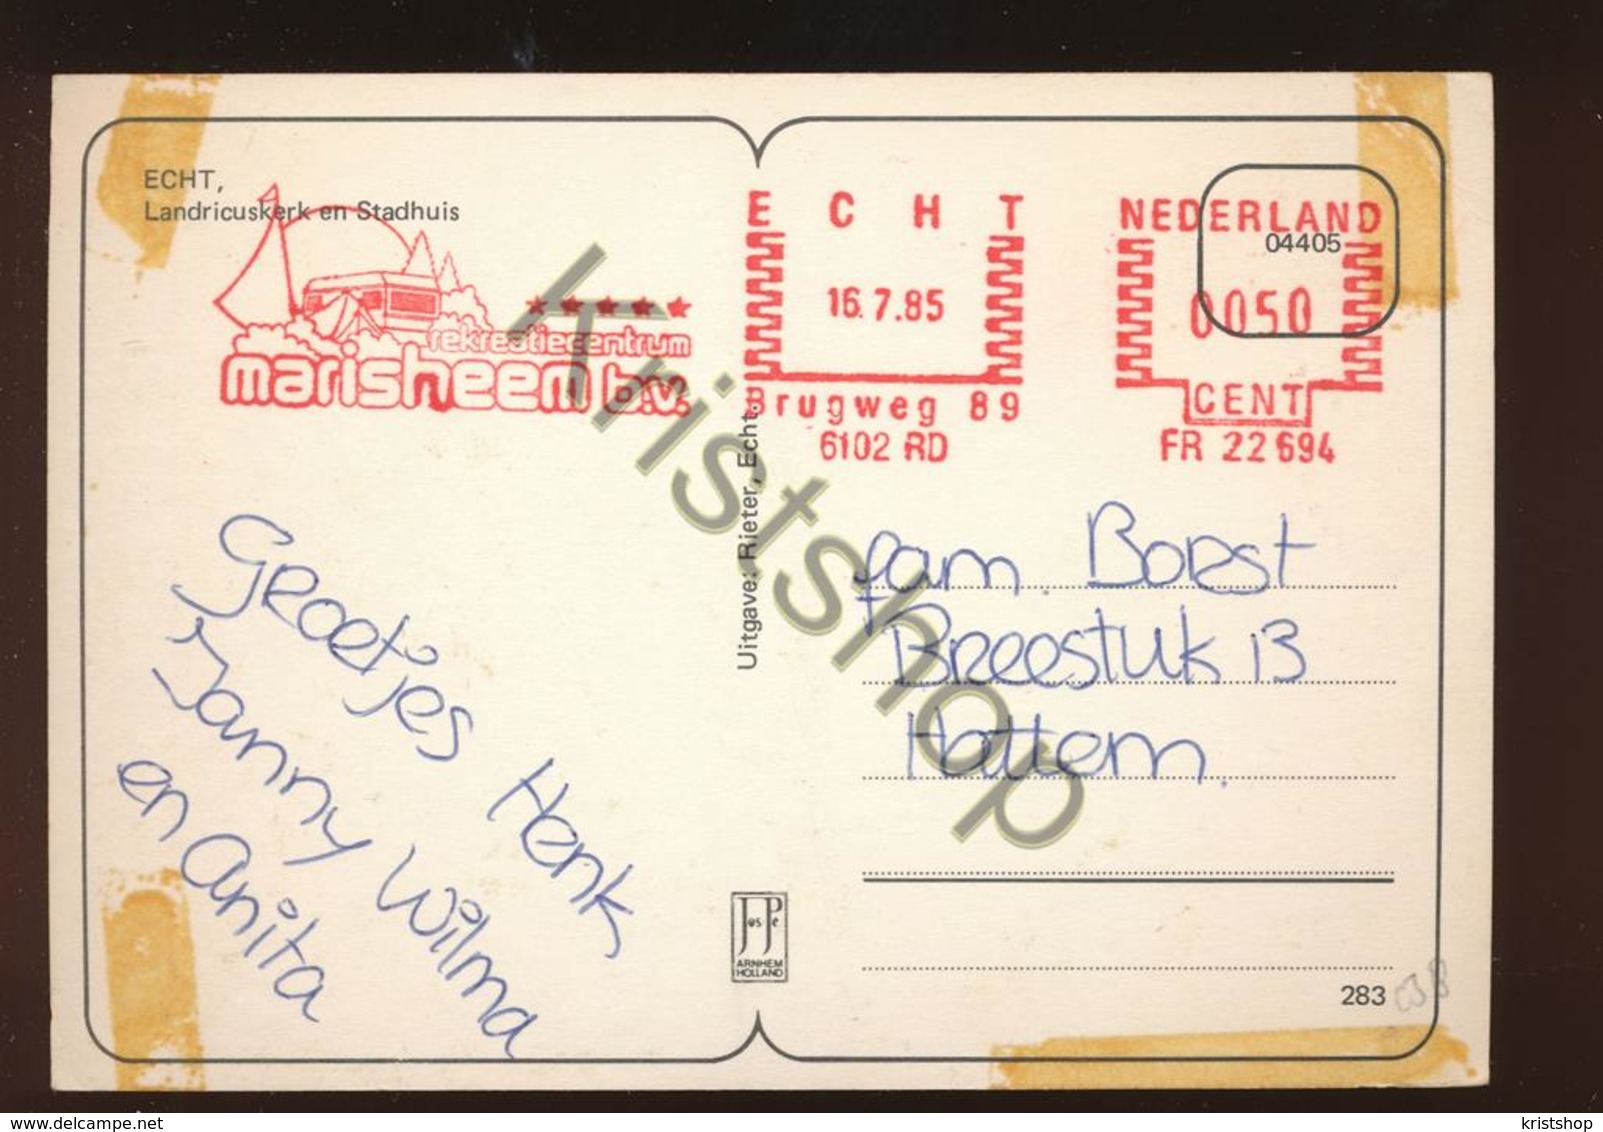 ECHT,
Landricuskerk en Stadhuis
rekreatiecentrum
marisheem b.v.
E C H T
16.7.85
Brugweg 89
6102 RD
NEDERLAND
04405
0050
CENT
FR 22694
Uitgave: Rieter, Echt.
Groetjes Henk
Janny Wilma
en Anita
fam. Borst
Breestuk 13
Hattem.
Jos Pe
ARNHEM
HOLLAND
283
038
Kristshop
www.delcampe.net
kristshop